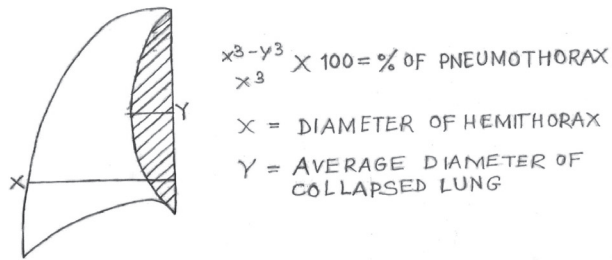 Y
X
x³-y³ X 100 = % OF PNEUMOTHORAX
x³
X = DIAMETER OF HEMITHORAX
Y = AVERAGE DIAMETER OF
COLLAPSED LUNG